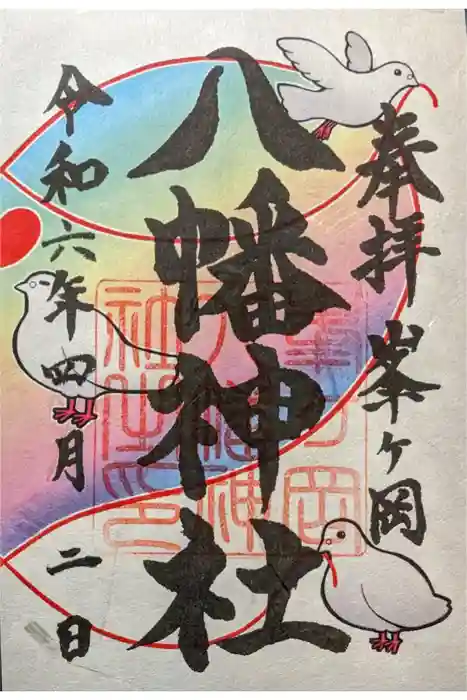 奉拝 峯ヶ岡
八幡神社
令和六年四月二日